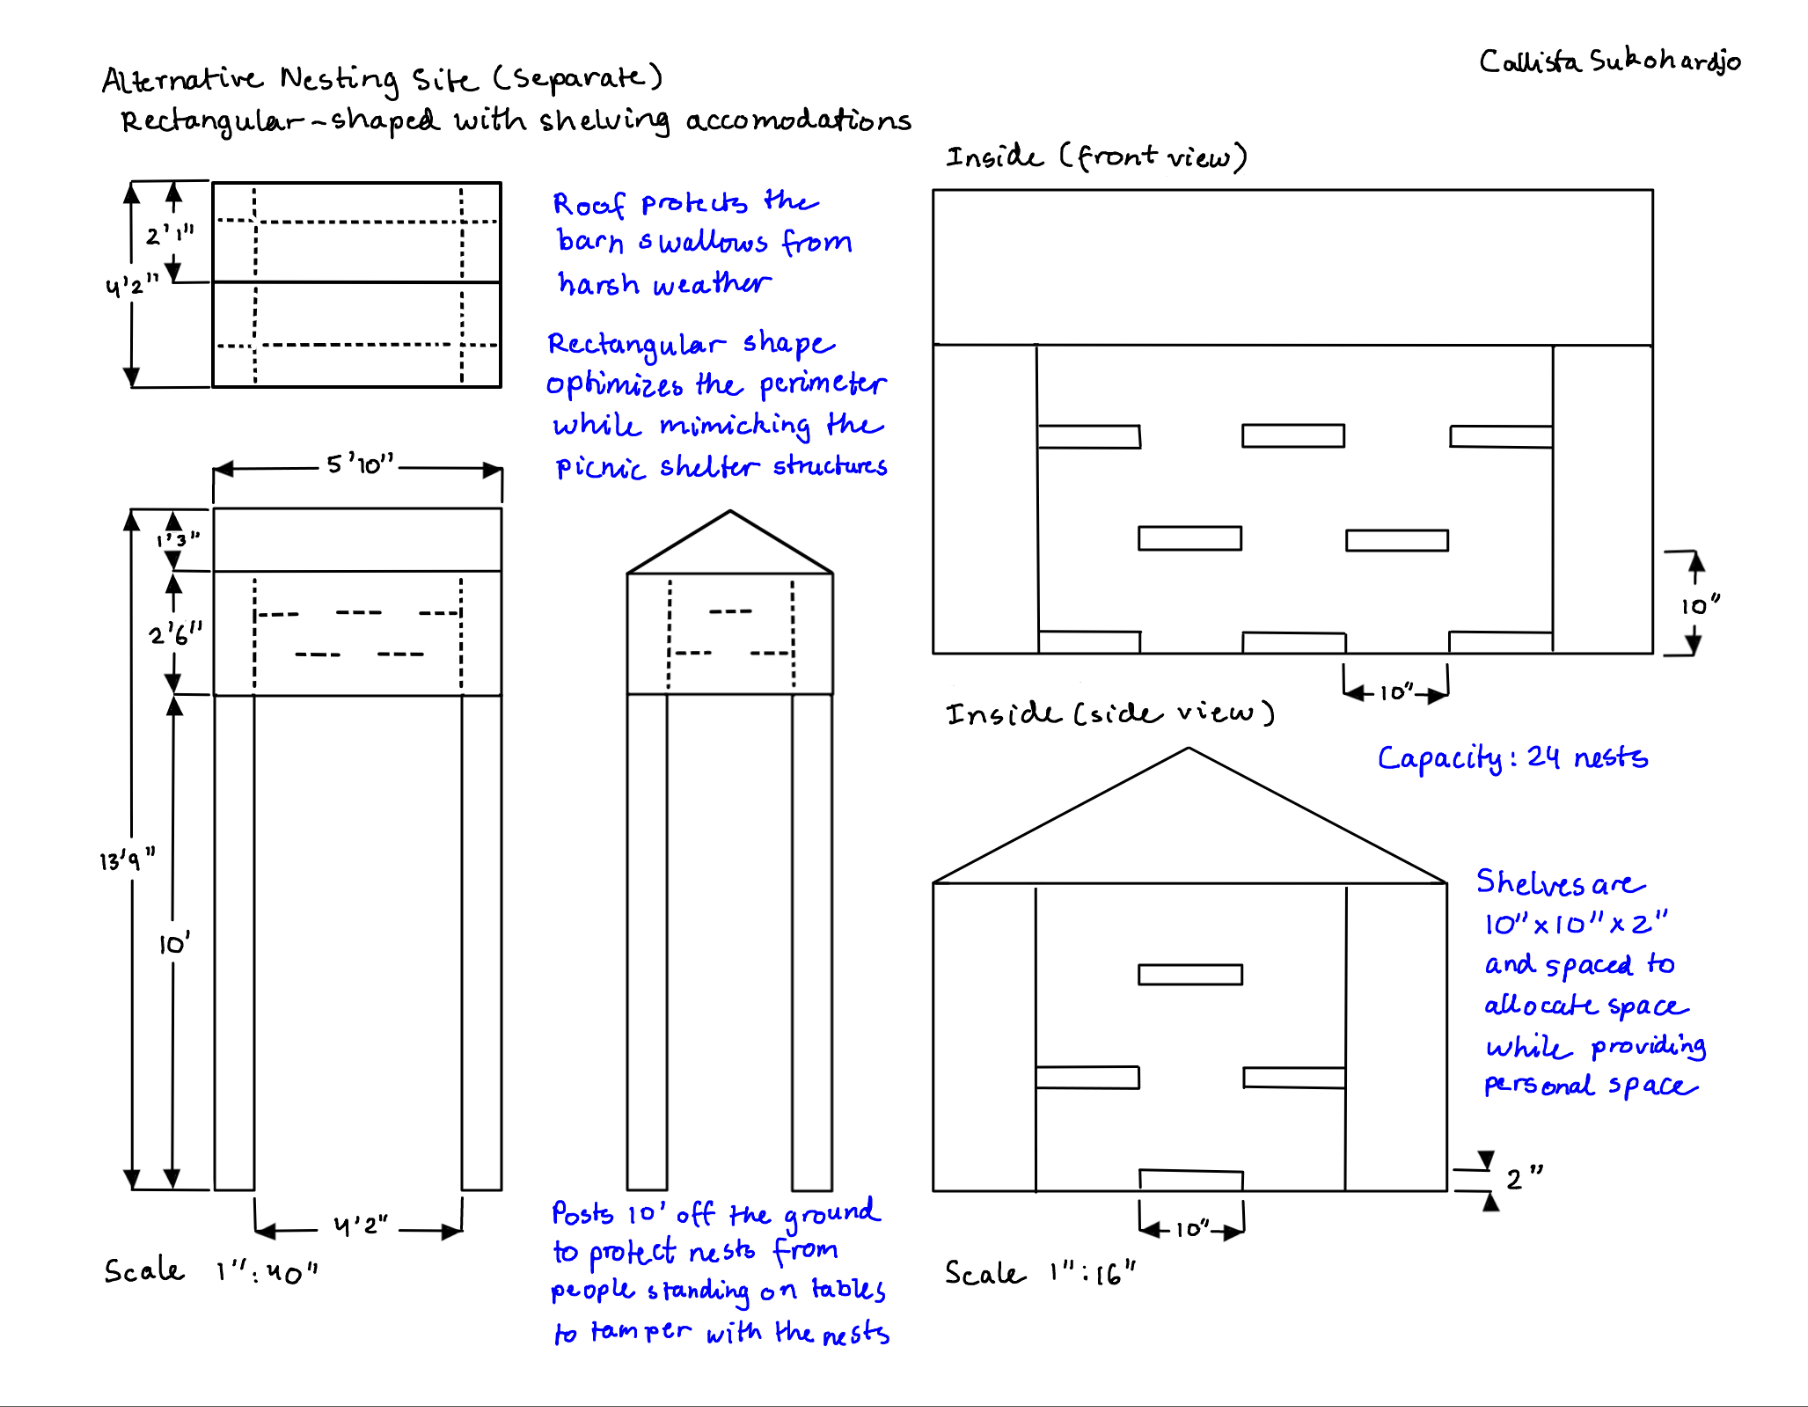 Callista Sukohardjo
Alternative Nesting Site (Separate)
Rectangular-shaped with shelving accomodations
2'1"
4'2"
Roof protects the
barn swallows from
harsh weather
Rectangular shape
optimizes the perimeter
while mimicking the
picnic shelter structures
5'10"
1'3"
2'6"
13'9"
10'
4'2"
Scale 1":40"
Posts 10' off the ground
to protect nests from
people standing on tables
to tamper with the nests
Inside (front view)
10"
10"
Inside (side view)
Capacity: 24 nests
Shelves are
10"x10"x2"
and spaced to
allocate space
while providing
personal space
2"
10"
Scale 1":16"